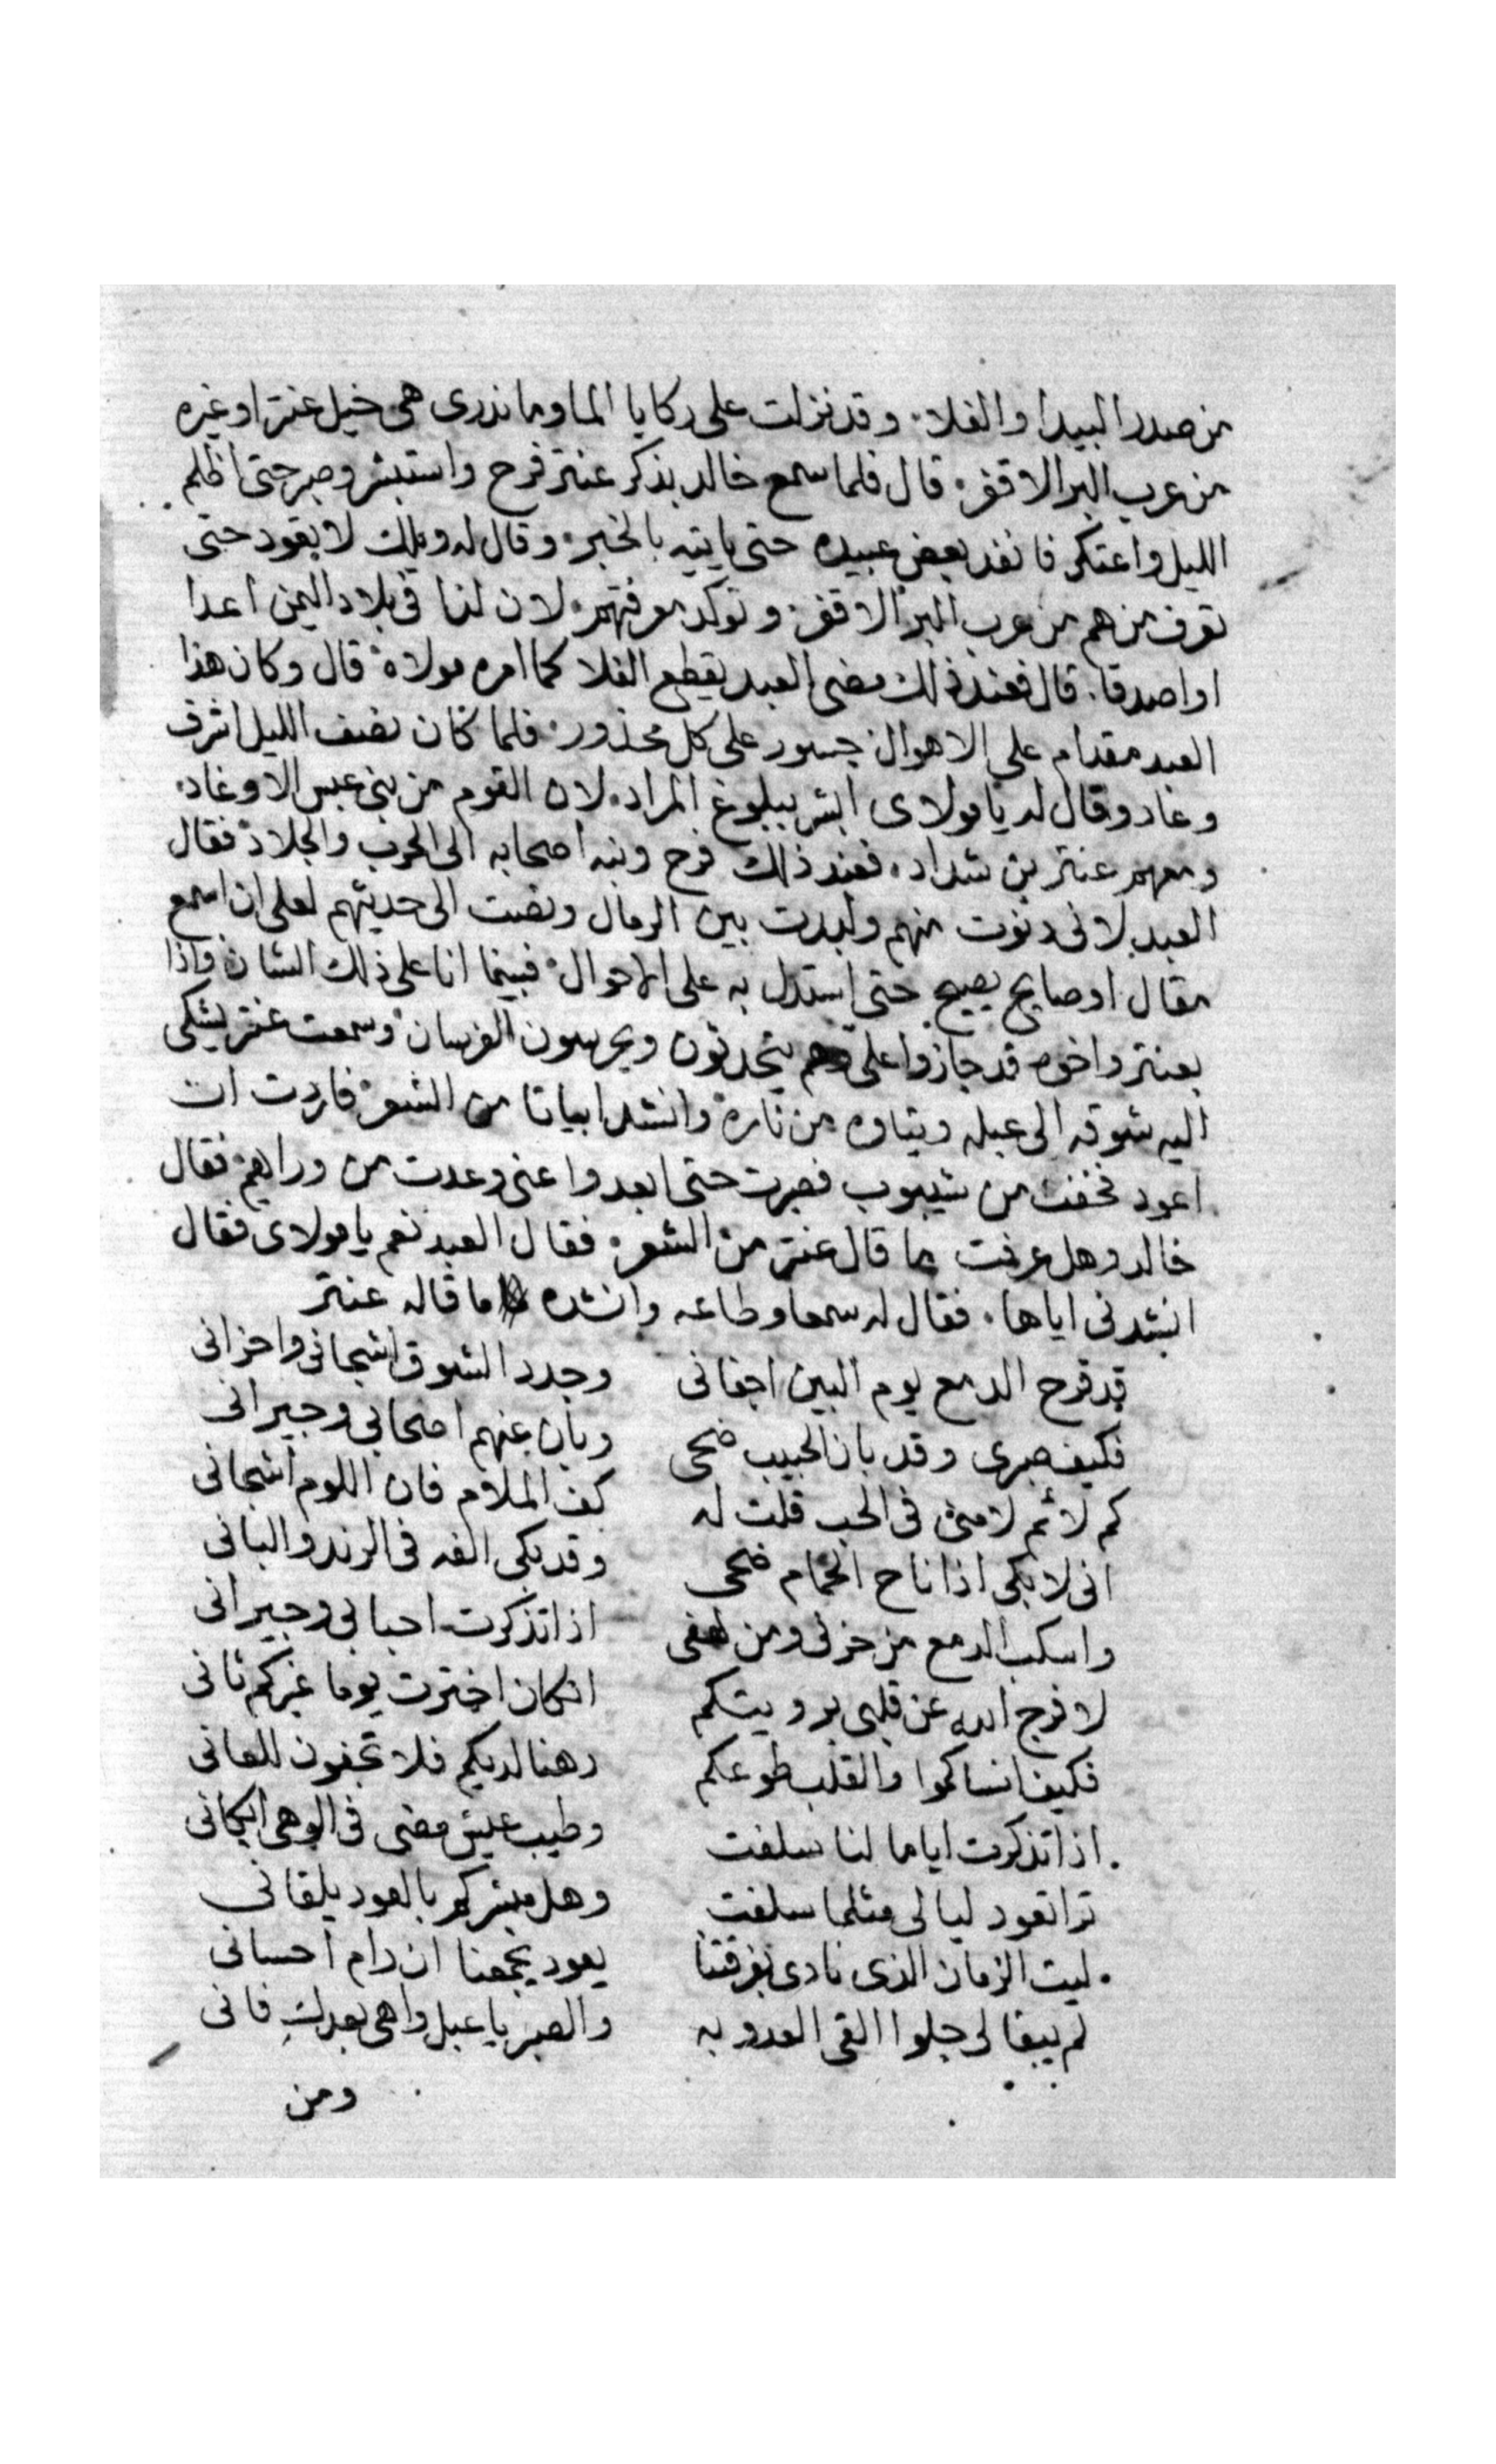 من صدر البيدا والفلا. وقد نزلت على ركايا الما وما ندرى هى خيل عنتر او غيره
من عرب البر الاقفر. قال فلما سمع خالد بذكر عنتر فرح واستبشر وصبر حتى اظلم
الليل واعتكر فانفد بعض عبيده حتى ياتيه بالخبر. وقال له ويلك لا تعود حتى
تعرف من هم من عرب البر الاقفر. وتوكد معرفتهم. لان لنا فى بلاد اليمن اعدا
او اصدقا. قال فعند ذلك مضى العبد يقطع الفلا كما امره مولاه قال وكان هذا
العبد مقدام على الاهوال جسور على كل محذور. فلما كان نصف الليل اشرف
وعاد وقال له يا مولاى ابشر ببلوغ المراد. لان القوم من بنى عبس الاوغاد.
ومعهم عنتر بن شداد. فعند ذلك فرح ونبه اصحابه الى الحرب والجلاد فقال
العبد لانى دنوت منهم ولبدت بين الرمال ونصت الى حديثهم لعلى ان اسمع
مقال او صايح يصيح حتى استدل به على الاحوال. فبينما انا على ذلك الشان واذا
بعنتر واخوه قد جازوا على وهم يتحدثون ويحرسون الفرسان وسمعت عنتر يشكى
اليه شوقه الى عبله ويتاوه من ناره وانشد ابياتا من الشعر فاردت ان
اعود فخفت من شيبوب فصبرت حتى ابعدوا عنى وعدت من ورايهم فقال
خالد وهل عرفت ما قال عنتر من الشعر. فقال العبد نعم يا مولاى فقال
انشدنى اياها. فقال له سمعا وطاعه وانشده ما قاله عنتر
قد قرح الدمع يوم البين اجفانى وجدد الشوق اشجانى واحزانى
فكيف صبرى وقد بان الحبيب ضحى وبان عنهم اصحابى وجيرانى
كم لائم لامنى فى الحب قلت له كف الملام فان اللوم اشجانى
انى لابكى اذا ناح الحمام ضحى وقد بكى الفه فى الرند والبانى
واسكب الدمع من حزنى ومن لهفى اذا تذكرت احبابى وجيرانى
لا فرج الله عن قلبى برويتكم انكان اخترت يوما غيركم ثانى
فكيف انساكموا والقلب طوعكم رهنا لديكم فلا تجفون للعانى
. اذا تذكرت اياما لنا سلفت وطيب عيش مضى فى ابكانى
ترا تعود ليالى مثلما سلفت وهل مبشركم بالعود يلقانى
. ليت الزمان الذى نادى بفرقتنا يعود يجمعنا ان رام احسانى
لم يبقا لى جلوا القى العدو به والصبر يا عبل واهى بعدك فانى
ومن